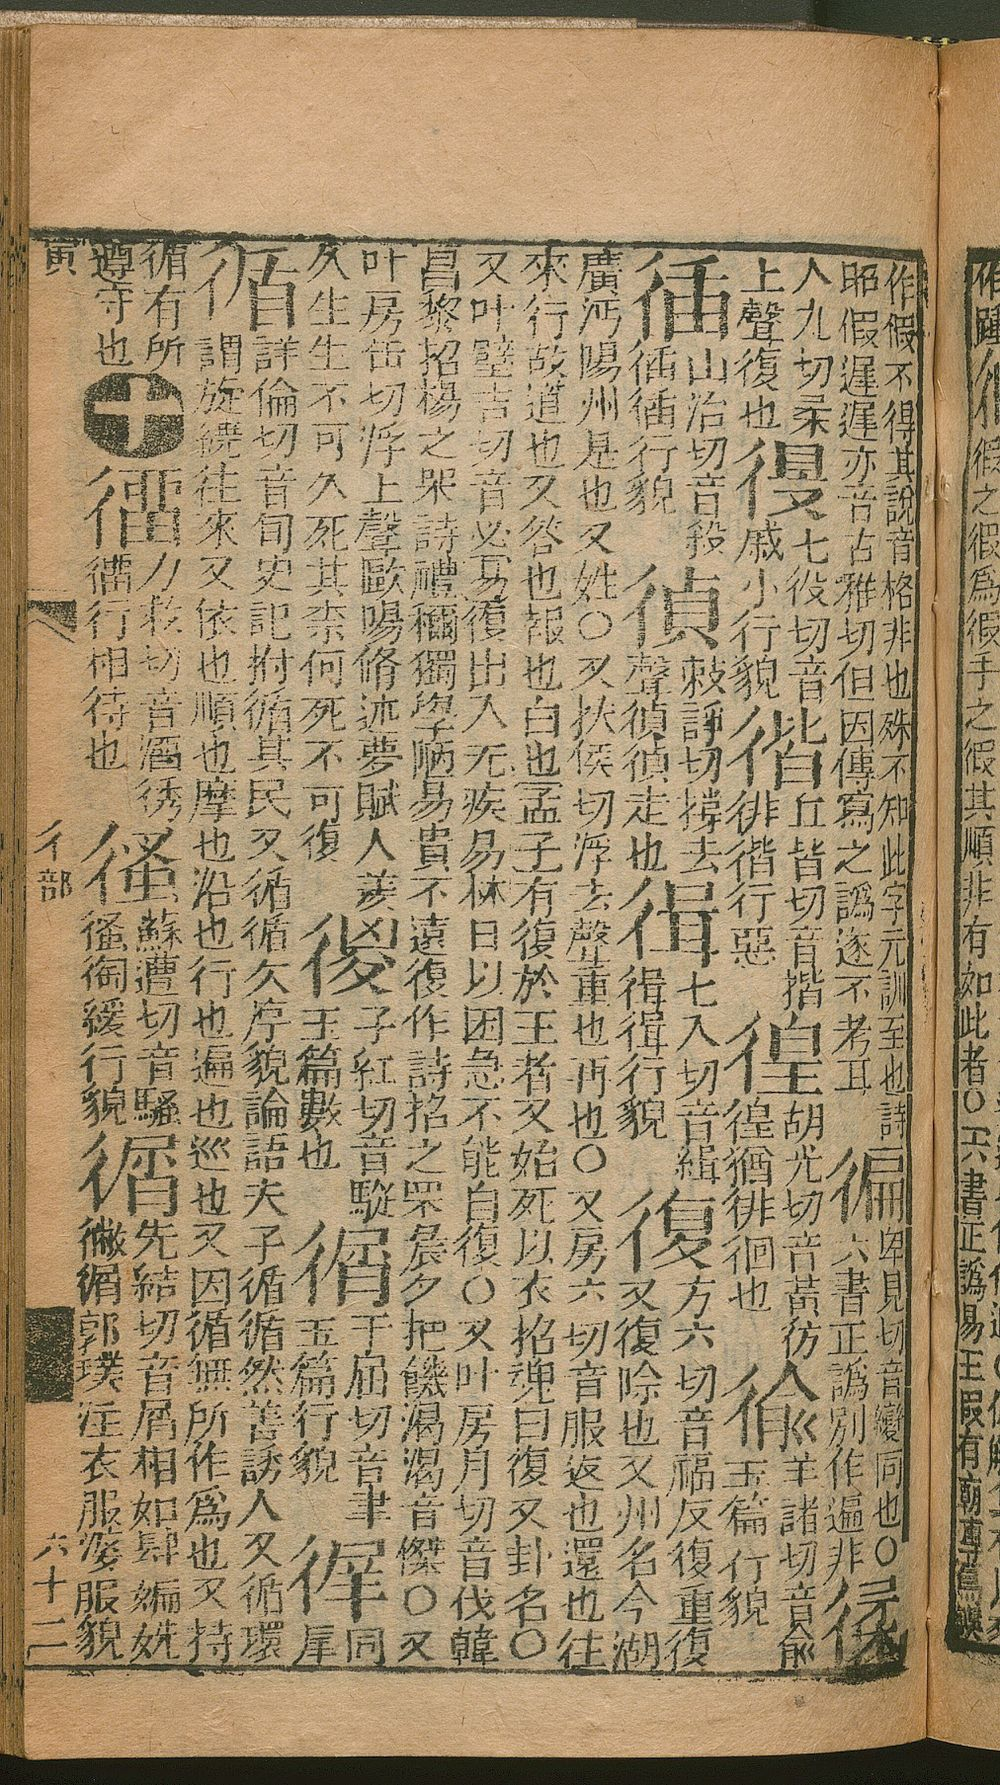 作假不得其說音格非也殊不知此字元訓至也詩
昭假遲遲亦苦古雅切但因傳寫之譌遂不考耳
徧卑見切音變同也〇
六書正譌別作遍非
人九切柔
上聲復也
七役切音
戚小行貌
丘皆切音揩
徘行惡
徨胡光切音黃彷
徨猶徘徊也
羊諸切音俞
玉篇行貌
行貌
敕諍切撐去
聲走也
七入切音緝
行貌
復方六切音福反復重復
又復除也又州名今湖
廣沔陽州是也又姓〇又扶侯切浮去聲重也再也〇又房六切音服返也還也往
來行故道也又答也報也白也孟子有復於王者又始死以衣招魂曰復又卦名〇
又叶壁吉切音必易復出入无疾易林曰以困急不能自復〇又叶房月切音伐韓
昌黎招楊之罘詩禮稱獨學陋易貴不遠復作詩招之罘晨夕把饑渴渴音傑〇又
叶房缶切浮上聲歐陽脩述夢賦人羨
久生生不可久死其柰何死不可復
子紅切音騣
玉篇數也
于屈切音聿
玉篇行貌
同
循詳倫切音旬史記拊循其民又循循久序貌論語夫子循循然善誘人又循環
謂旋繞往來又依也順也摩也沿也行也遍也巡也又因循無所作爲也又持
循有所
遵守也
十
力救切音溜
行相待也
蘇遭切音騷
緩行貌
先結切音屑相如賦媥姺
徶㣯郭璞注衣服婆服貌
寅
彳部
六十二